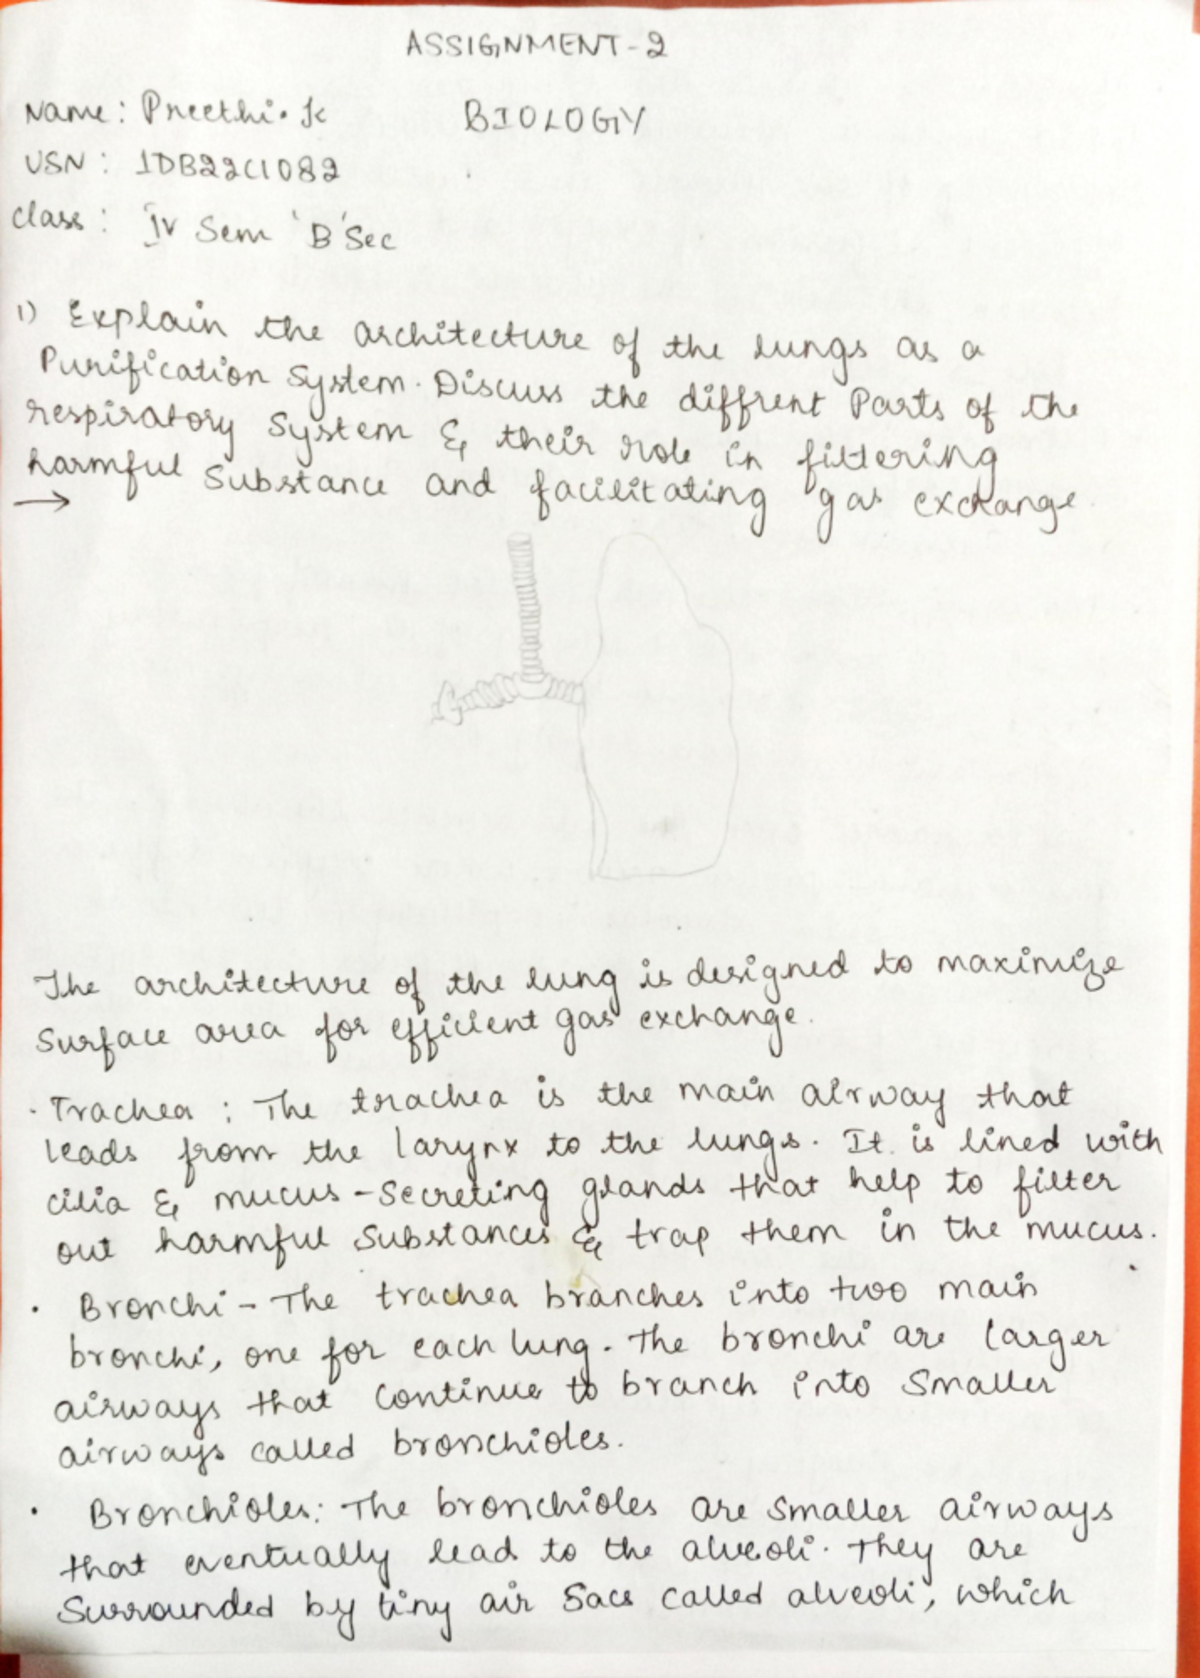 ASSIGNMENT-2
Name: Preethi. K
BIOLOGY
USN: 1DB22CI082
class: IV Sem 'B' Sec
1) Explain the architecture of the lungs as a
Purification System. Discuss the diffrent Parts of the
respiratory System & their role in filtering
harmful Substance and facilitating gas exchange.
→
The architecture of the lung is designed to maximize
Surface area for efficient gas exchange.
· Trachea : The trachea is the main airway that
leads from the larynx to the lungs. It is lined with
cilia & mucus-Secreting glands that help to filter
out harmful Substances & trap them in the mucus.
· Bronchi - The trachea branches into two main
bronchi, one for each lung. The bronchi are larger
airways that continue to branch into Smaller
airways called bronchioles.
· Bronchioles: The bronchioles are Smaller airways
that eventually lead to the alveoli. They are
Surrounded by tiny air Sacs called alveoli, which